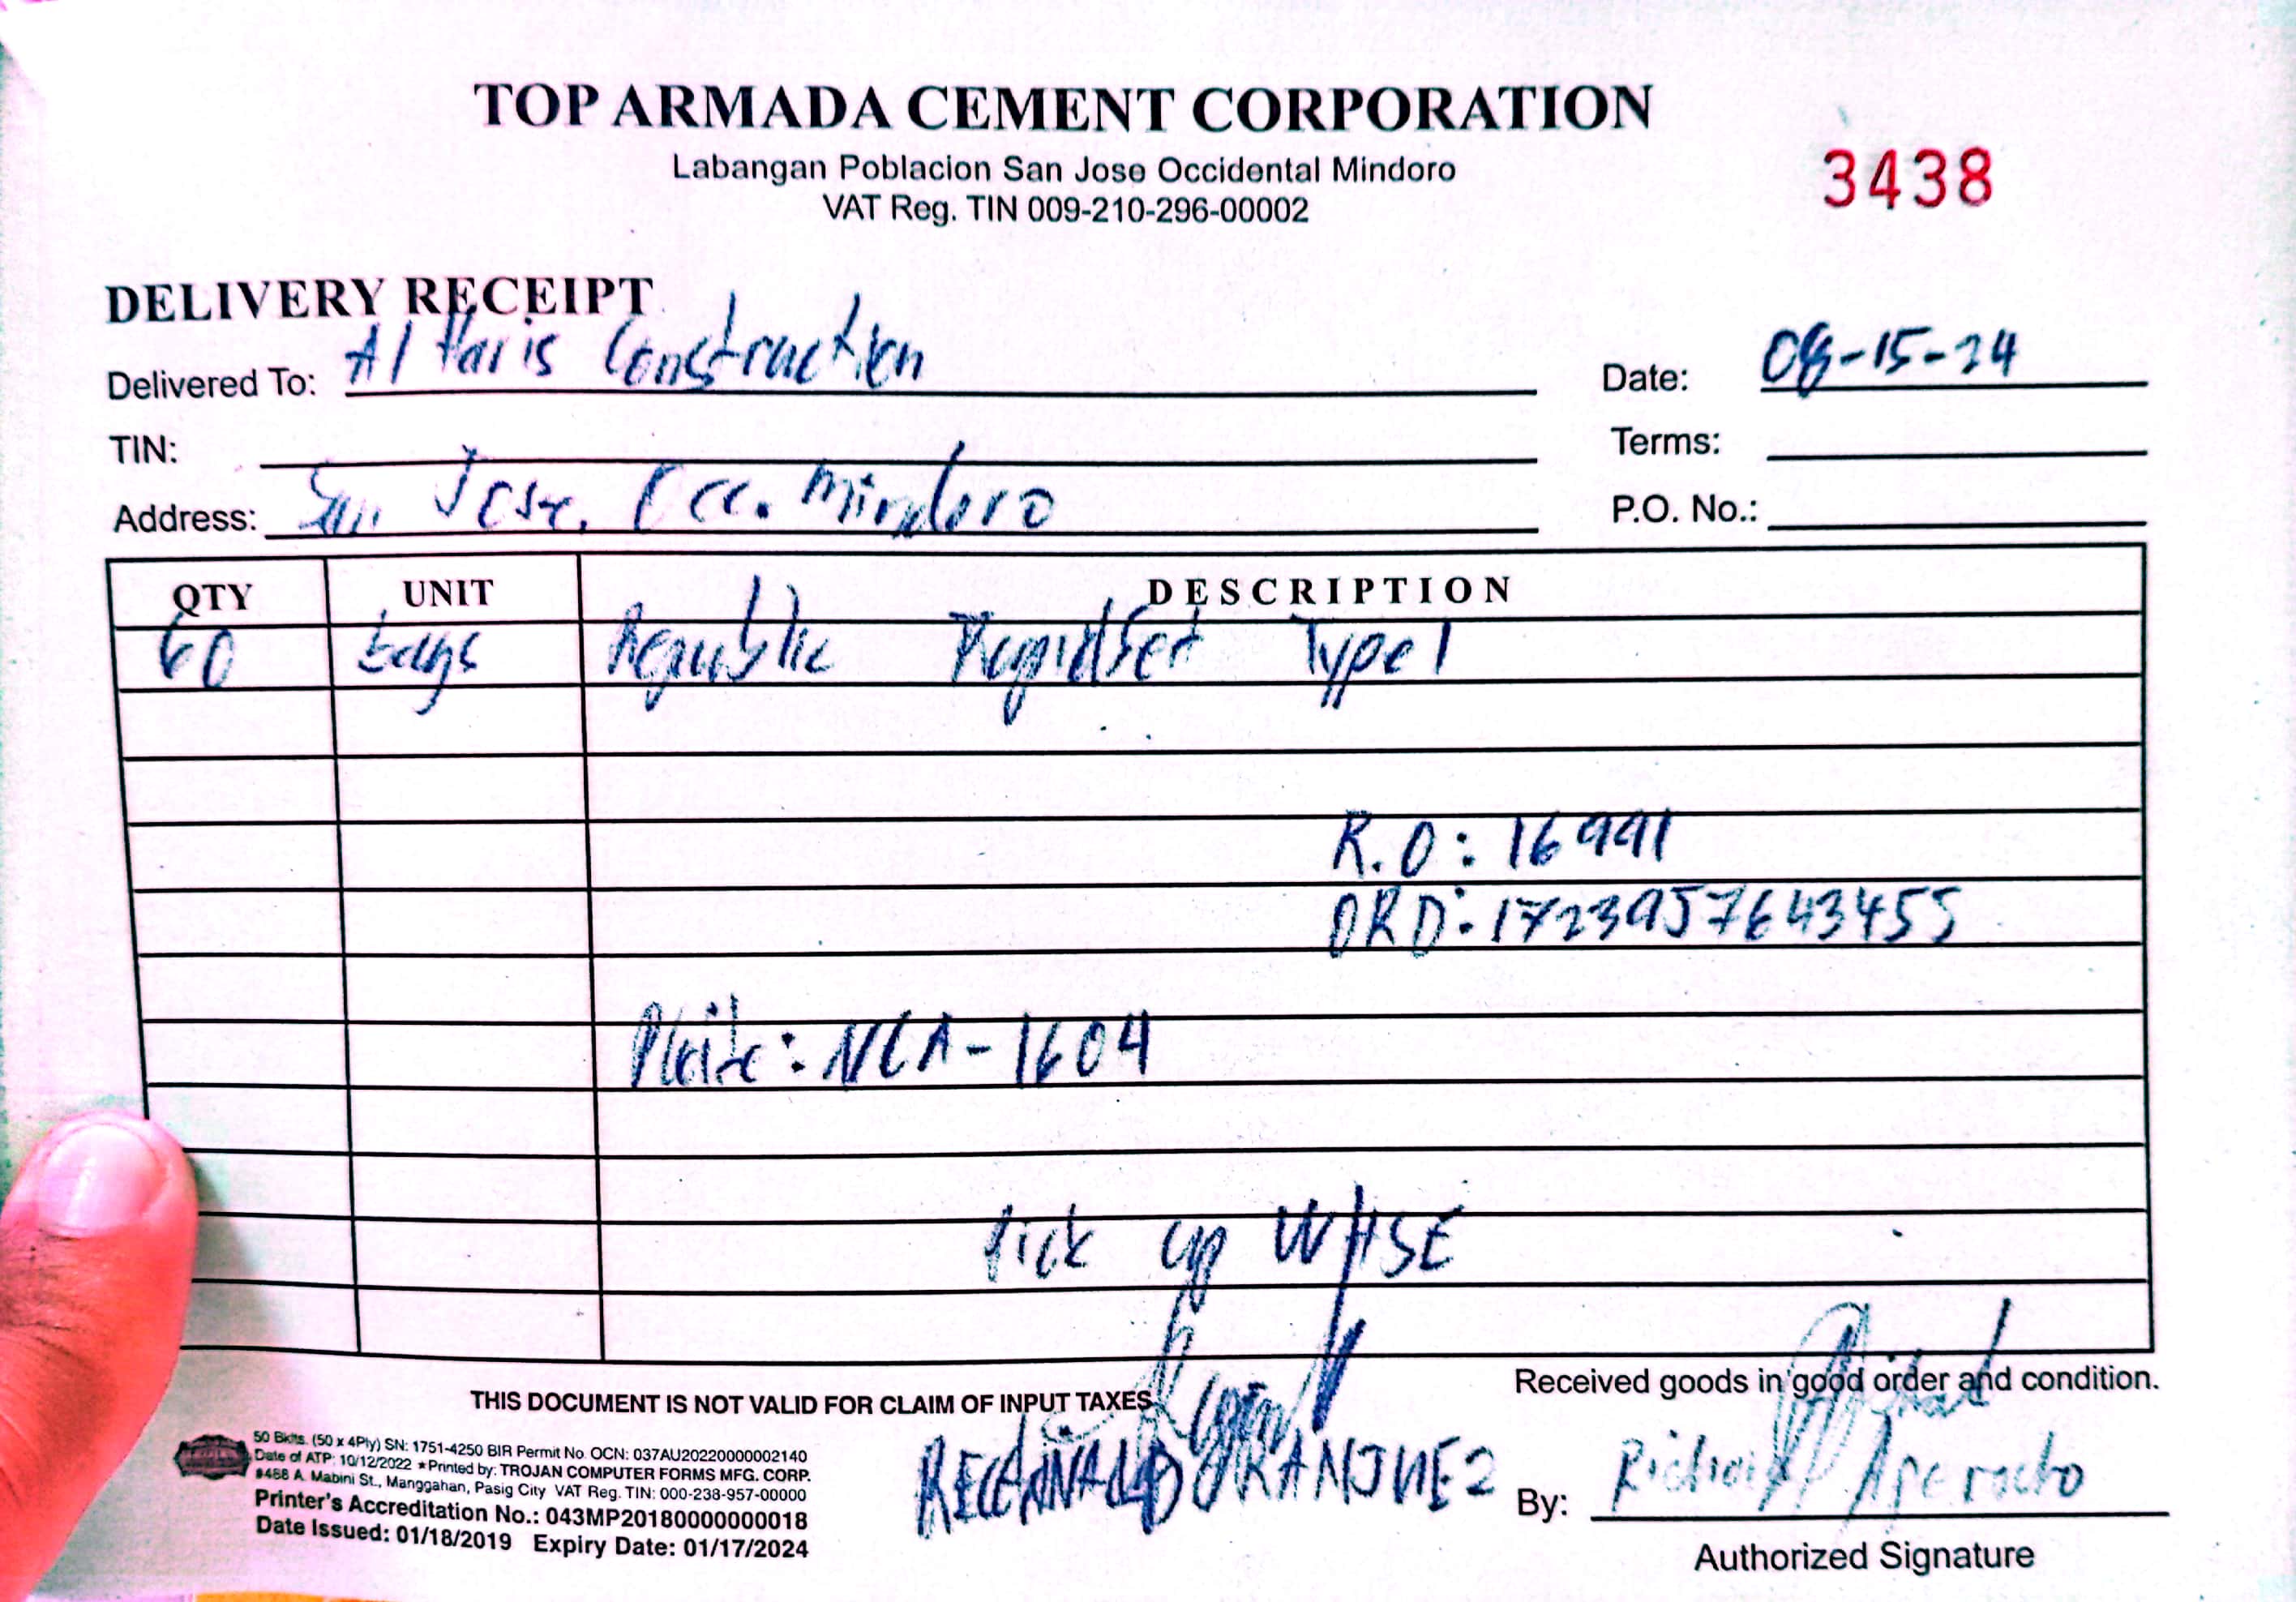 TOP ARMADA CEMENT CORPORATION
Labangan Poblacion San Jose Occidental Mindoro
VAT Reg. TIN 009-210-296-00002
3438
DELIVERY RECEIPT
Delivered To: Al Haris Construction
Date: 08-15-24
TIN:
Terms:
Address: San Jose, Occ. Mindoro
P.O. No.:
QTY UNIT DESCRIPTION
60 bags Republic Type 1
R.O: 16991
ORD: 1723957643455
Plate: NCA-1604
Pick up WHSE
Received goods in good order and condition.
THIS DOCUMENT IS NOT VALID FOR CLAIM OF INPUT TAXES
50 Bklts. (50 x 4Ply) SN: 1751-4250 BIR Permit No. OCN: 037AU20220000002140
Date of ATP: 10/12/2022 ★Printed by: TROJAN COMPUTER FORMS MFG. CORP.
#488 A. Mabini St., Manggahan, Pasig City VAT Reg. TIN: 000-238-957-00000
Printer's Accreditation No.: 043MP20180000000018
Date Issued: 01/18/2019 Expiry Date: 01/17/2024
By:
Authorized Signature